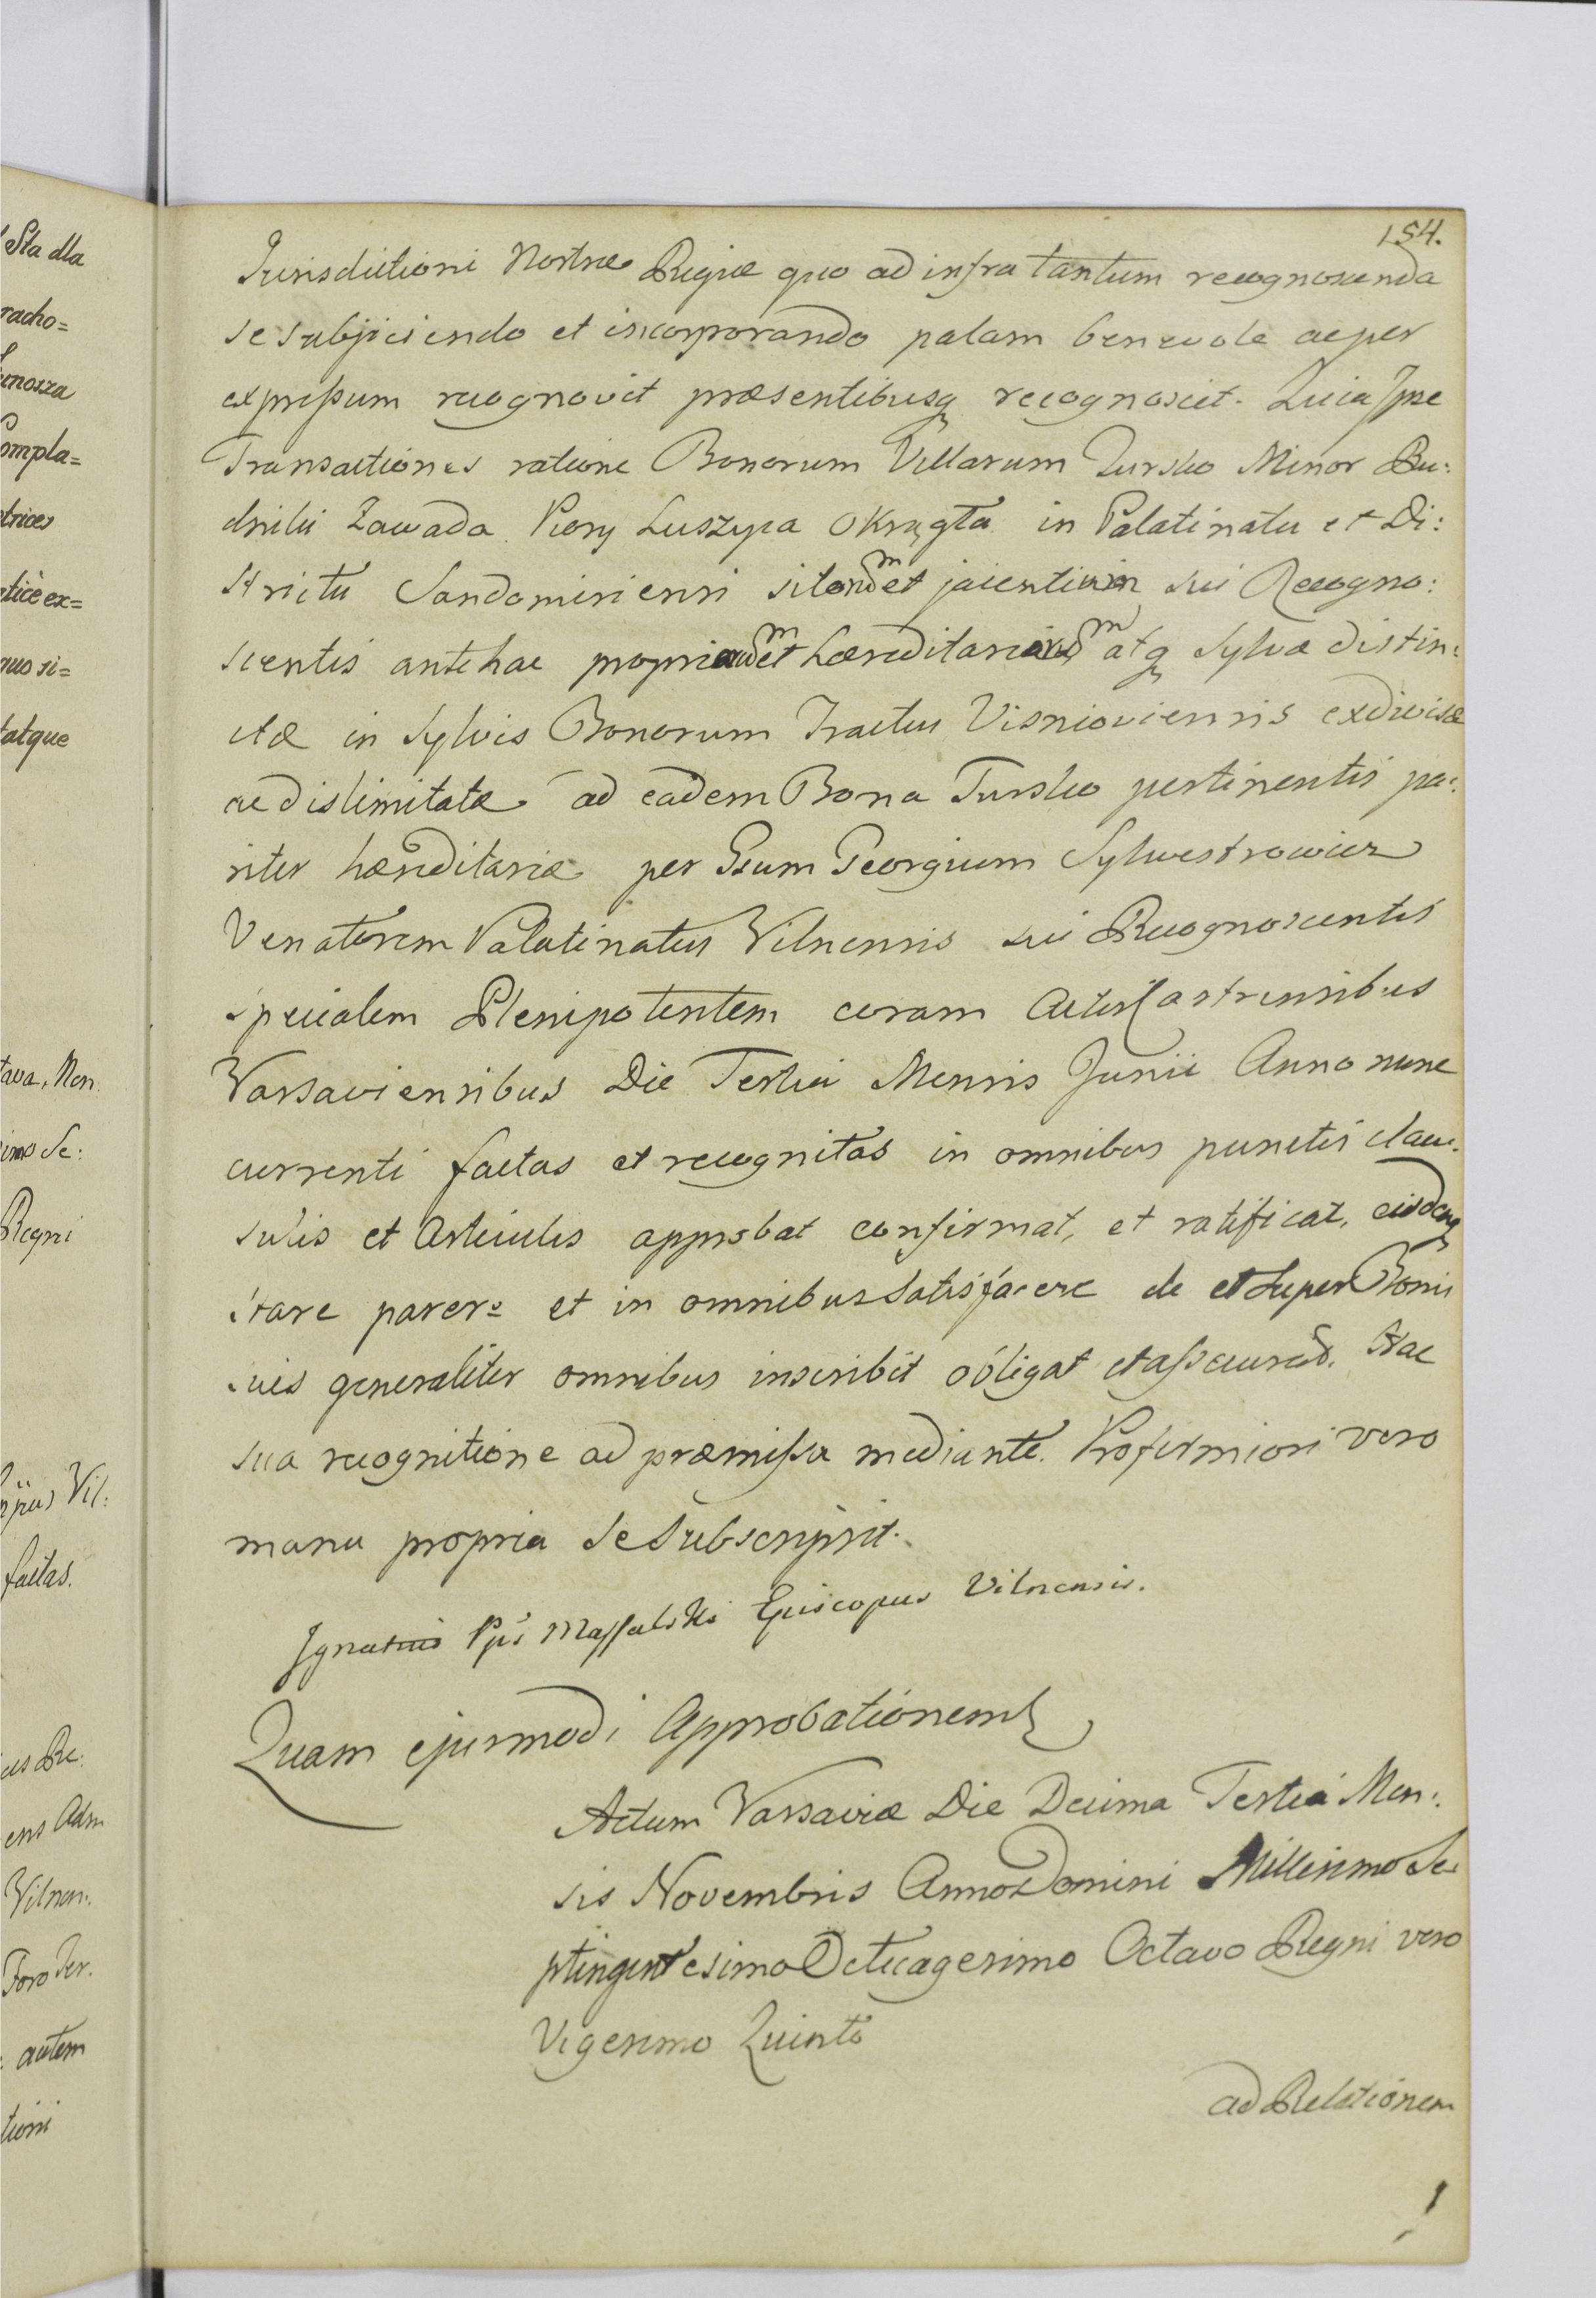 154.
Jurisdictioni Nostræ Regiæ quo ad infra tantum recognoscenda
se subjiciendo et incorporando palam benevole ac per
expressum recognovit præsentibusq recognoscit. Quia Ipse
Transactiones ratione Bonorum Villarum Tursko Minor Ru:
dniki Zawada Piory Luszyca Okrągła in Palatinatu et Di:
strictu Sandomiriensi sitorum et jacentium sui Recogno:
scentis antehac propriorum et hæreditariorum atq Sylvæ distin:
ctæ in Sylvis Bonorum Tractus Visnioviensis exdivisæ
ac dislimitatæ ad eadem Bona Tursko pertinentis pa:
riter hæreditariæ per Gsum Georgium Sylwestrowicz
Venatorem Palatinatus Vilnensis sui Recognoscentis
specialem Plenipotentem coram Actis Castrensibus
Varsaviensibus Die Tertia Mensis Junii Anno nunc
currenti factas et recognitas in omnibus punctis clau:
sulis et Articulis approbat confirmat, et ratificat, eisdemq
stare parere et in omnibus satisfacere de et super Bonis
suis generaliter omnibus inscribit obligat et assecurat. Hac
sua recognitione ad præmissa mediante. Pro firmiori vero
manu propria se subscripsit.
Ignatius Pps Massalski Episcopus Vilnensis.
Quam ejusmodi Approbationem
Actum Varsaviæ Die Decima Tertia Men:
sis Novembris Anno Domini Millesimo Se:
ptingentesimo Octuagesimo Octavo Regni vero
Vigesimo Quinto
ad Relationem
Sta dla
racho=
ompla=
trices
tice ex=
quo si=
tatque
tava, Men
imo Se:
Regni
Vil:
factas.
us Re:
ens Adm
Vilnen:
Foro Ter.
autem
tioni